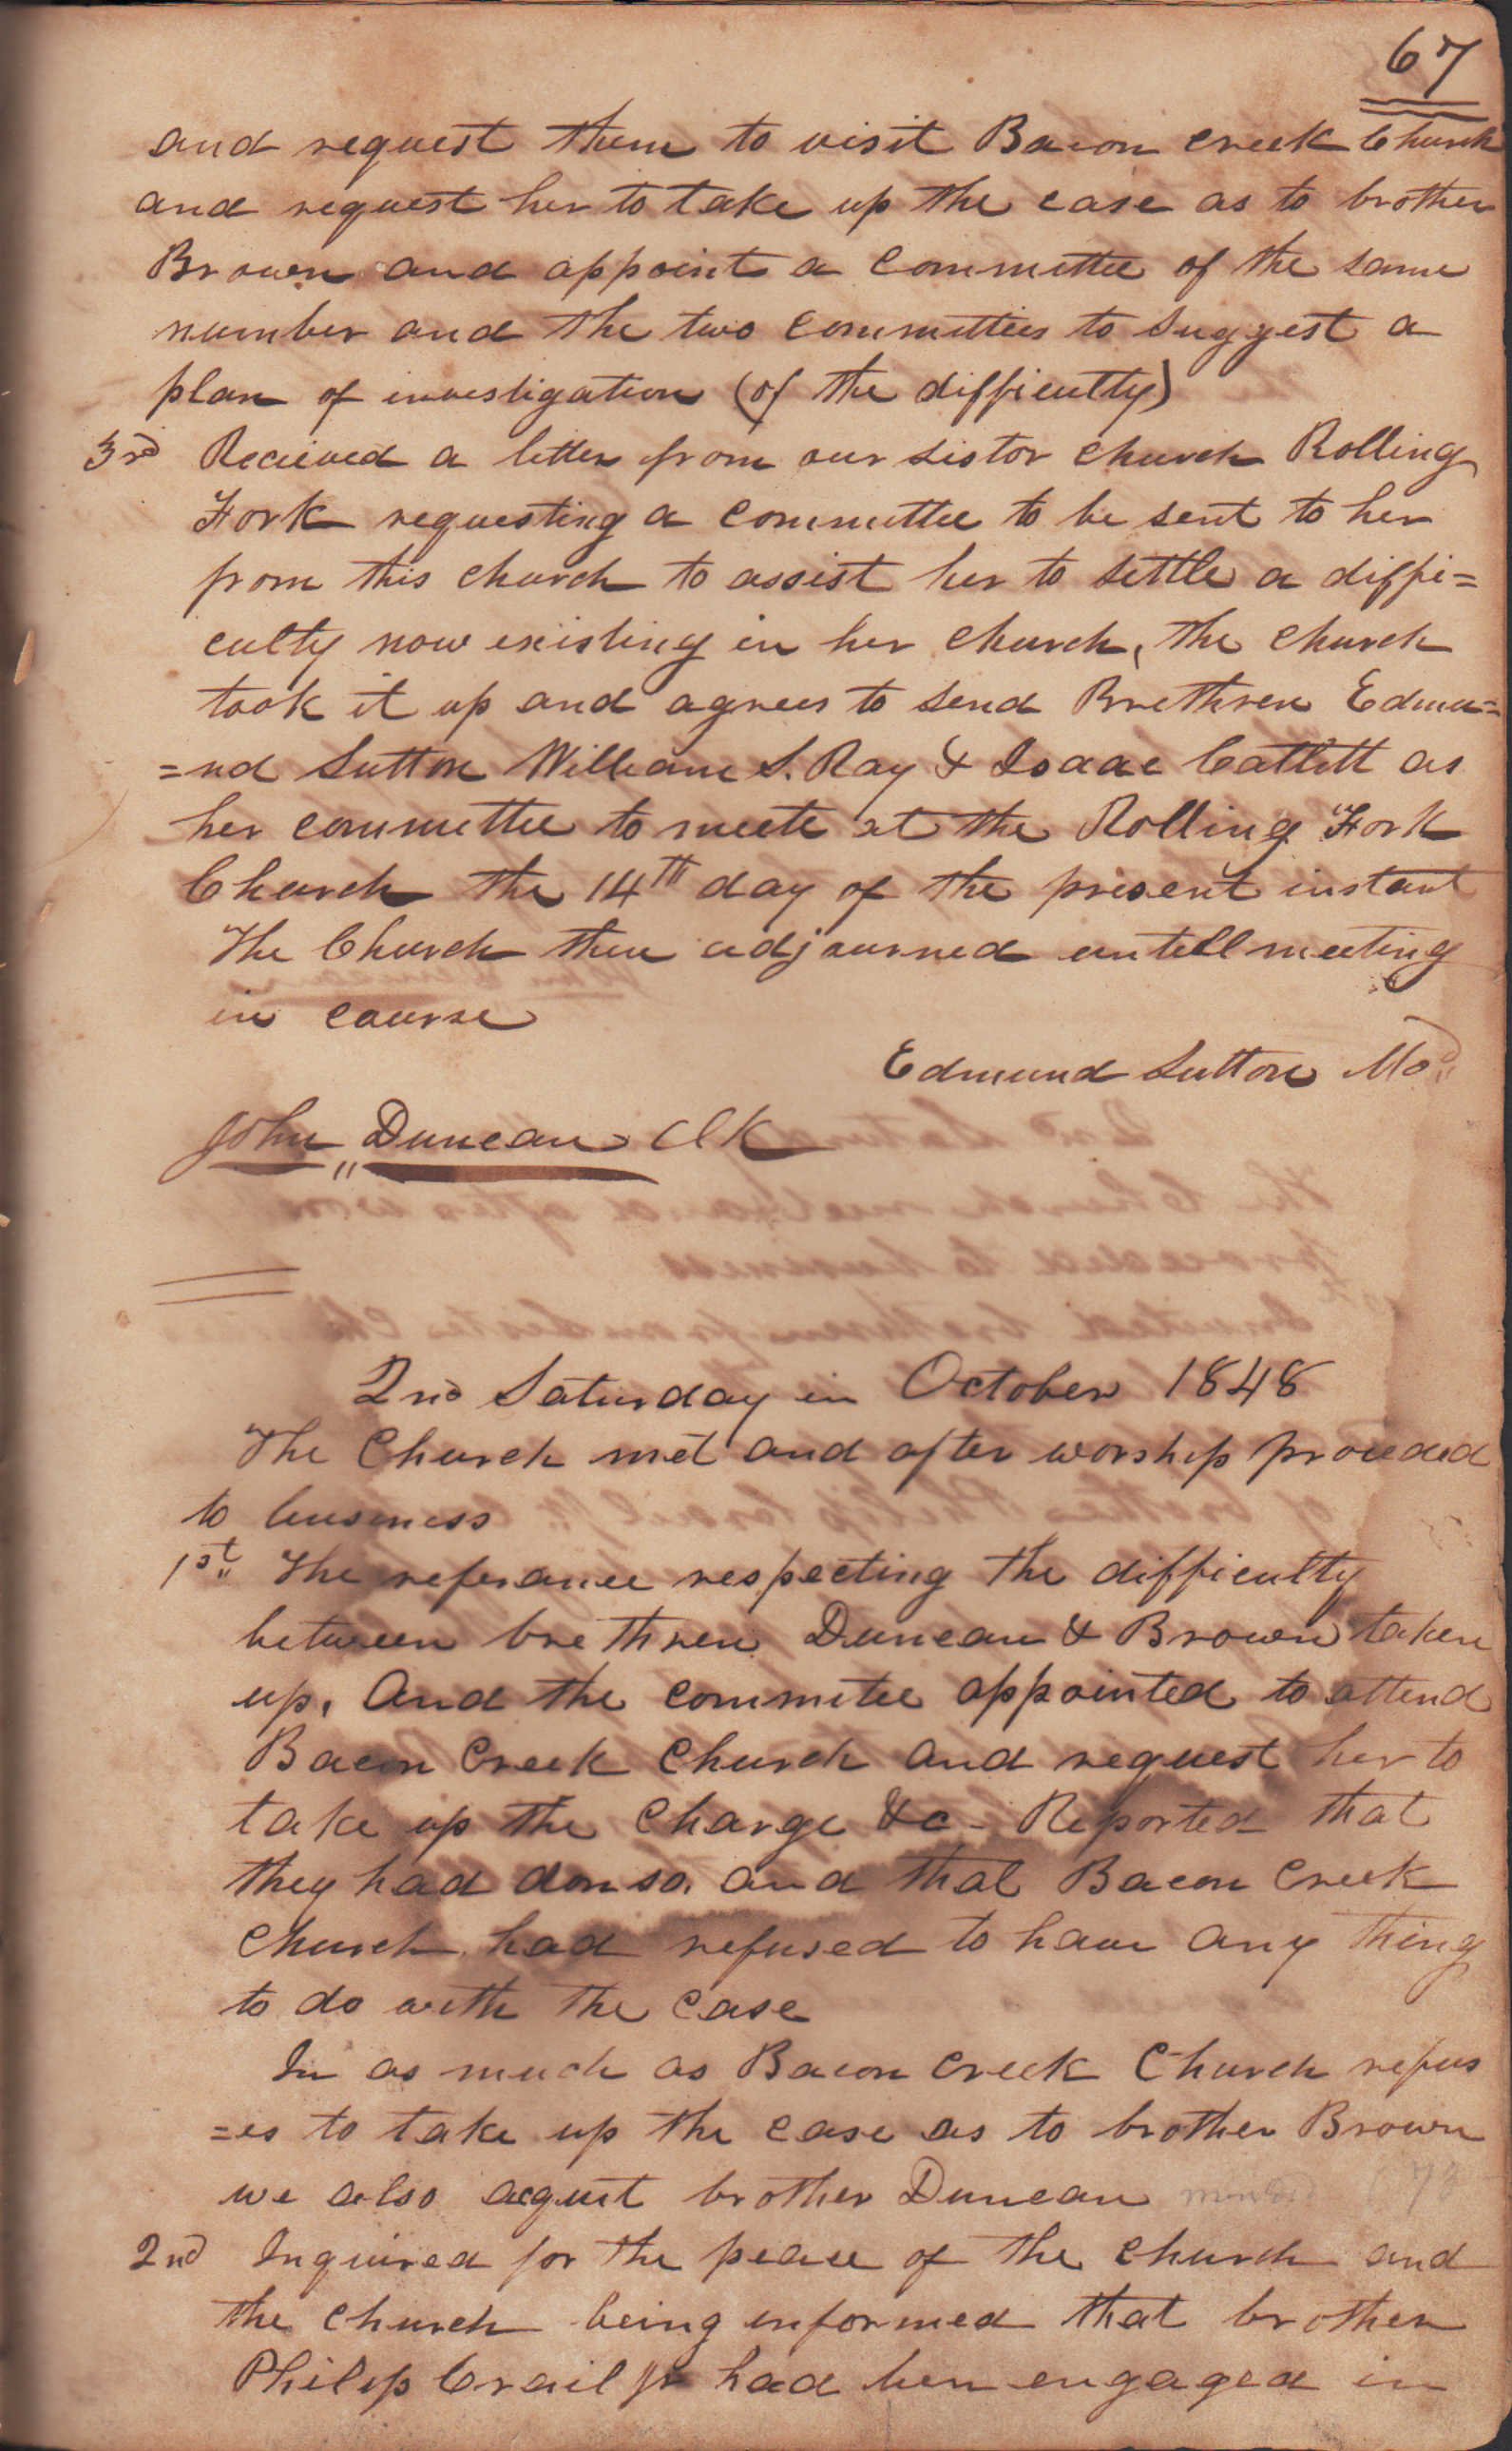 67
and request them to visit Bacon creek Church
and request her to take up the case as to brother
Brown and appoint a committee of the same
number and the two committies to suggest a
plan of investigation (of the difficulty)
3rd Recieved a letter from our sistor church Rolling
Fork requesting a committee to be sent to her
from this church to assist her to settle a diffi=
culty now existing in her church, the church
took it up and agrees to send Brethren Edmu=
=nd Sutton William S. Ray & Isaac Catlett as
her committee to meete at the Rolling Fork
Church the 14th day of the present instant
The Church then adjourned untell meeting
in course
Edmund Sutton Mod
John Duncan Clk
2nd Saturday in October 1848
The Church met and after worship proceded
to buseness
1st The referance respecting the difficulty
between brethren Duncan & Brown taken
up, and the commitee appointed to attend
Bacon Creek Church and request her to
take up the charge &c - Reported that
they had don so, and that Bacon Creek
Church had refused to have any thing
to do with the case
In as much as Bacon creek Church refus
=es to take up the case as to brother Brown
we also acquit brother Duncan
2nd Inquired for the peace of the church and
the church being informed that brother
Philip Crail jr had ben engaged in